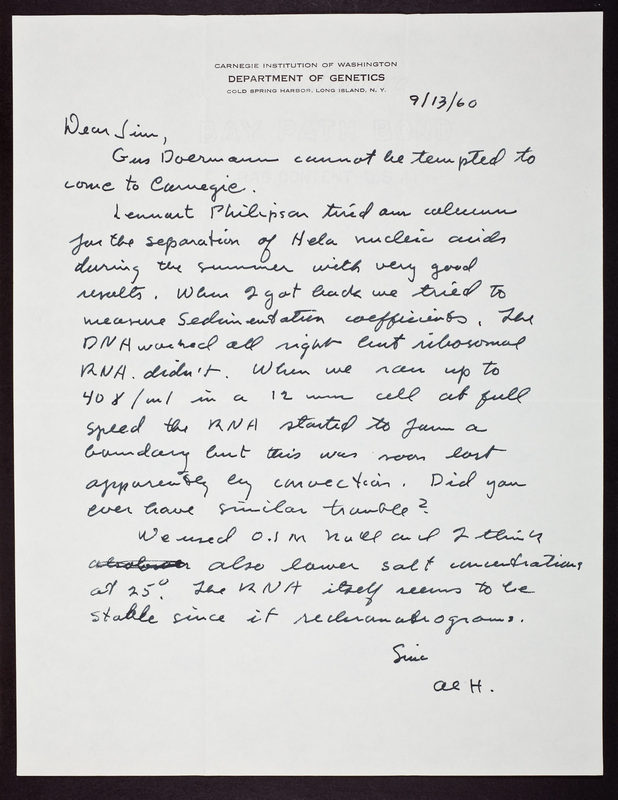 CARNEGIE INSTITUTION OF WASHINGTON
DEPARTMENT OF GENETICS
COLD SPRING HARBOR, LONG ISLAND, N. Y.
9/13/60
Dear Jim,
Gus Doermann cannot be tempted to
come to Carnegie.
Lennart Philipson tried our column
for the separation of Hela nucleic acids
during the summer with very good
results. When I got back we tried to
measure Sedimentation coefficients. The
DNA worked all right but ribosomal
RNA didn't. When we ran up to
40 γ/ml in a 12 mm cell at full
speed the RNA started to form a
boundary but this was soon lost
apparently by convection. Did you
ever have similar trouble?
We used 0.1 M NaCl and I think
also lower salt concentrations
at 25°. The RNA itself seems to be
stable since it rechromatograms.
Sinc
Al H.